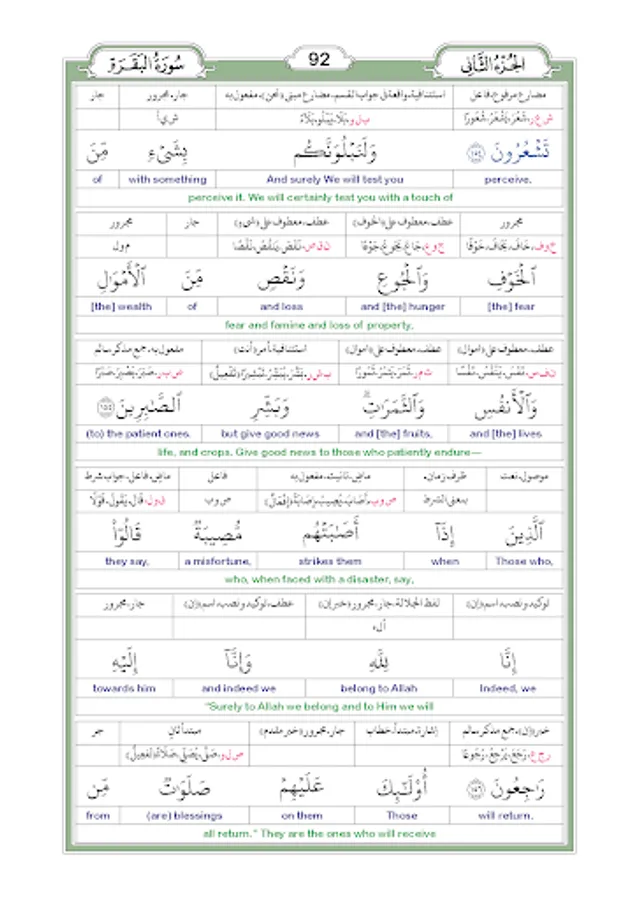 سُورَةُ البَقَرَة 92 الجُزْءُ الثَّانِي
مضارع مرفوع، فاعل استئنافية، واقعة في جواب لقسم، مضارع مبني (نحن)، مفعول به جار، مجرور جار
ش ع ر، شَعَرَ، يَشْعُرُ، شُعُورًا ب ل و، بَلَا، يَبْلُو، بَلَاءً ش ي أ
تَشْعُرُونَ ١٥٤ وَلَنَبْلُوَنَّكُم بِشَىْءٍ مِّنَ
of with something And surely We will test you perceive.
perceive it. We will certainly test you with a touch of
مجرور عطف، معطوف على (الخوف) عطف، معطوف على (شيء) جار مجرور
خ و ف، خَافَ، يَخَافُ، خَوْفًا ج و ع، جَاعَ، يَجُوعُ، جَوْعًا ن ق ص، نَقَصَ، يَنقُصُ، نَقْصًا م و ل
ٱلْخَوْفِ وَٱلْجُوعِ وَنَقْصٍ مِّنَ ٱلْأَمْوَٰلِ
[the] wealth of and loss and [the] hunger [the] fear
fear and famine and loss of property,
عطف، معطوف على (اموال) عطف، معطوف على (اموال) استئنافية، أمر (أنت) مفعول به، جمع مذكر سالم
ن ف س، نَفُسَ، يَنْفُسُ، نَفْسًا ث م ر، ثَمَرَ، يَثْمُرُ، ثُمُورًا ب ش ر، بَشَّرَ، يُبَشِّرُ، تَبْشِيرًا (تَفْعِيلٌ) ص ب ر، صَبَرَ، يَصْبِرُ، صَبْرًا
وَٱلْأَنفُسِ وَٱلثَّمَرَٰتِ ۗ وَبَشِّرِ ٱلصَّـٰبِرِينَ ١٥٥
(to) the patient ones. but give good news and [the] fruits, and [the] lives
life, and crops. Give good news to those who patiently endure—
موصول، نعت ظرف زمان، ماض، تانيث، مفعول به فاعل ماض، فاعل، جواب شرط
بمعنى الشرط ص و ب، أَصَابَ، يُصِيبُ، إِصَابَةً (إِفْعَالٌ) ص و ب ق و ل، قَالَ، يَقُولُ، قَوْلًا
ٱلَّذِينَ إِذَآ أَصَـٰبَتْهُم مُّصِيبَةٌ قَالُوٓا۟
they say, a misfortune, strikes them when Those who,
who, when faced with a disaster, say,
توكيد ونصب، اسم (إن) لفظ الجلالة، جار، مجرور (خبر إن) عطف، توكيد ونصب، اسم (إن) جار، مجرور
أ ل ه
إِنَّا لِلَّهِ وَإِنَّآ إِلَيْهِ
towards him and indeed we belong to Allah Indeed, we
"Surely to Allah we belong and to Him we will
خبر (إن)، جمع مذكر سالم إشارة، مبتدأ، خطاب جار، مجرور (خبر مقدم) مبتدأ ثان جر
ر ج ع، رَجَعَ، يَرْجِعُ، رُجُوعًا ص ل و، صَلَّى، يُصَلِّي، صَلَاةً (تَفْعِيلٌ)
رَٰجِعُونَ ١٥٦ أُو۟لَـٰٓئِكَ عَلَيْهِمْ صَلَوَٰتٌ مِّن
from (are) blessings on them Those will return.
all return." They are the ones who will receive